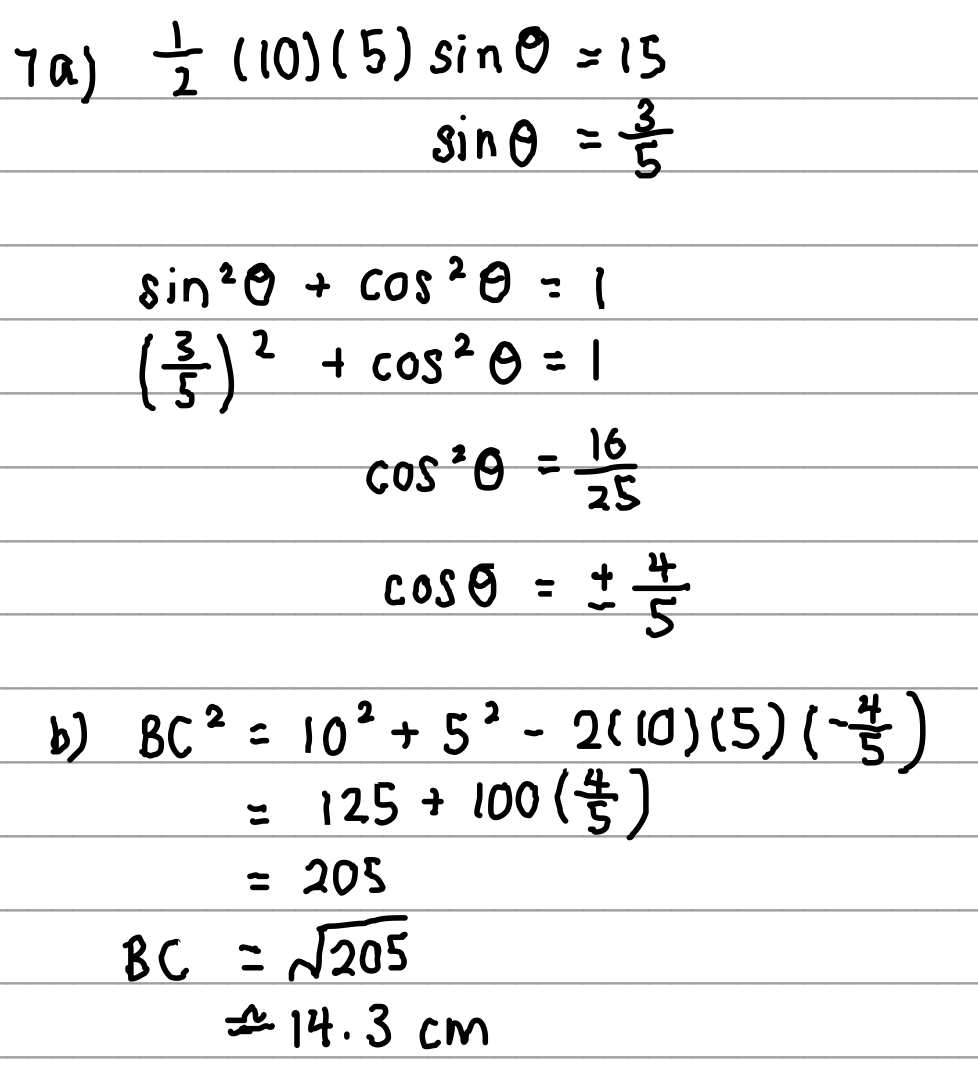 7a) 1/2 (10)(5) sin θ = 15
sin θ = 3/5
sin²θ + cos²θ = 1
(3/5)² + cos²θ = 1
cos²θ = 16/25
cos θ = ± 4/5
b) BC² = 10² + 5² - 2(10)(5)(-4/5)
= 125 + 100(4/5)
= 205
BC = √205
≏ 14.3 cm